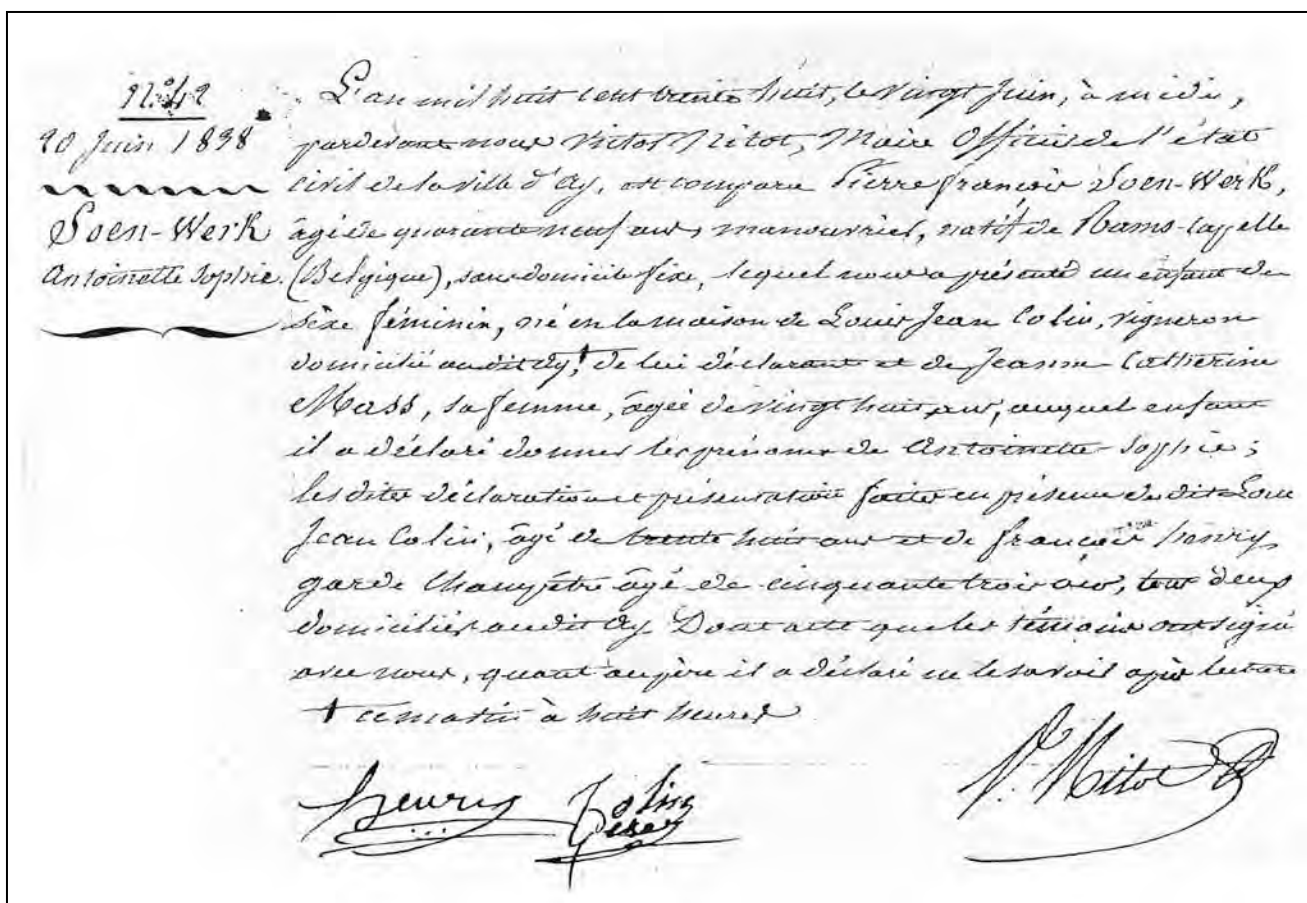 N.° 42
20 Juin 1838
Soen-Werk
Antoinette Sophie.
L'an mil huit cent trente huit, le vingt Juin, à midi,
pardevant nous Victor Nitot, Maire Officier de l'état
civil de la ville d'Ay, est comparu Pierre françois Soen-Werk,
âgé de quarante neuf ans, manouvrier, natif de Rams-Capelle
(Belgique), sans domicile fixe, lequel nous a présenté un enfant de
sèxe féminin, né en la maison de Louis Jean Colin, vigneron
domicilié audit Ay, † de lui déclarant et de Jeanne Catherine
Mass, sa femme, âgée de vingt huit ans, auquel enfant
il a déclaré donner les prénoms de Antoinette Sophie;
les dites déclaration et présentation faites en présence du dit Louis
Jean Colin, âgé de trente huit ans et de françois henry,
garde Champêtre âgé de cinquante trois ans, tous deux
domiciliés audit Ay. Dont acte que les témoins ont signé
avec nous, quant au père il a déclaré ne le savoir après lecture
† ce matin à huit heures
henry Colin
V. Nitot